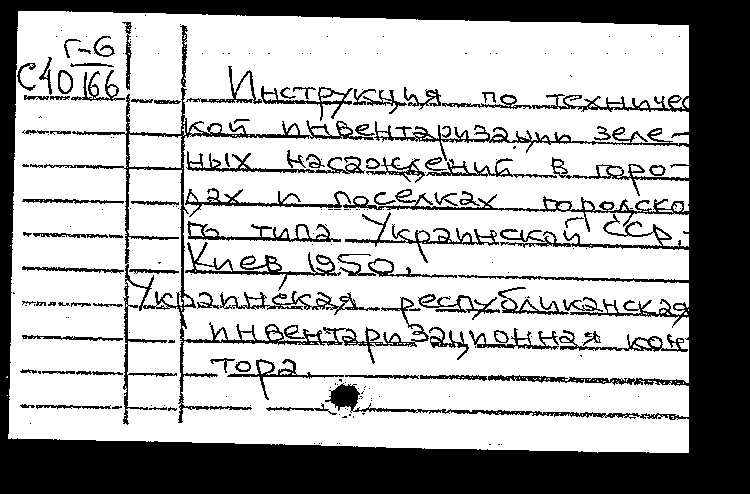 Г-6
С40166
Инструкция по техничес
кой инвентаризации зеле-
ных насаждений в горо-
дах и поселках городско
го типа Украинской ССР.-
Киев, 1950.
Украинская республиканская
инвентаризационная кон
тора.